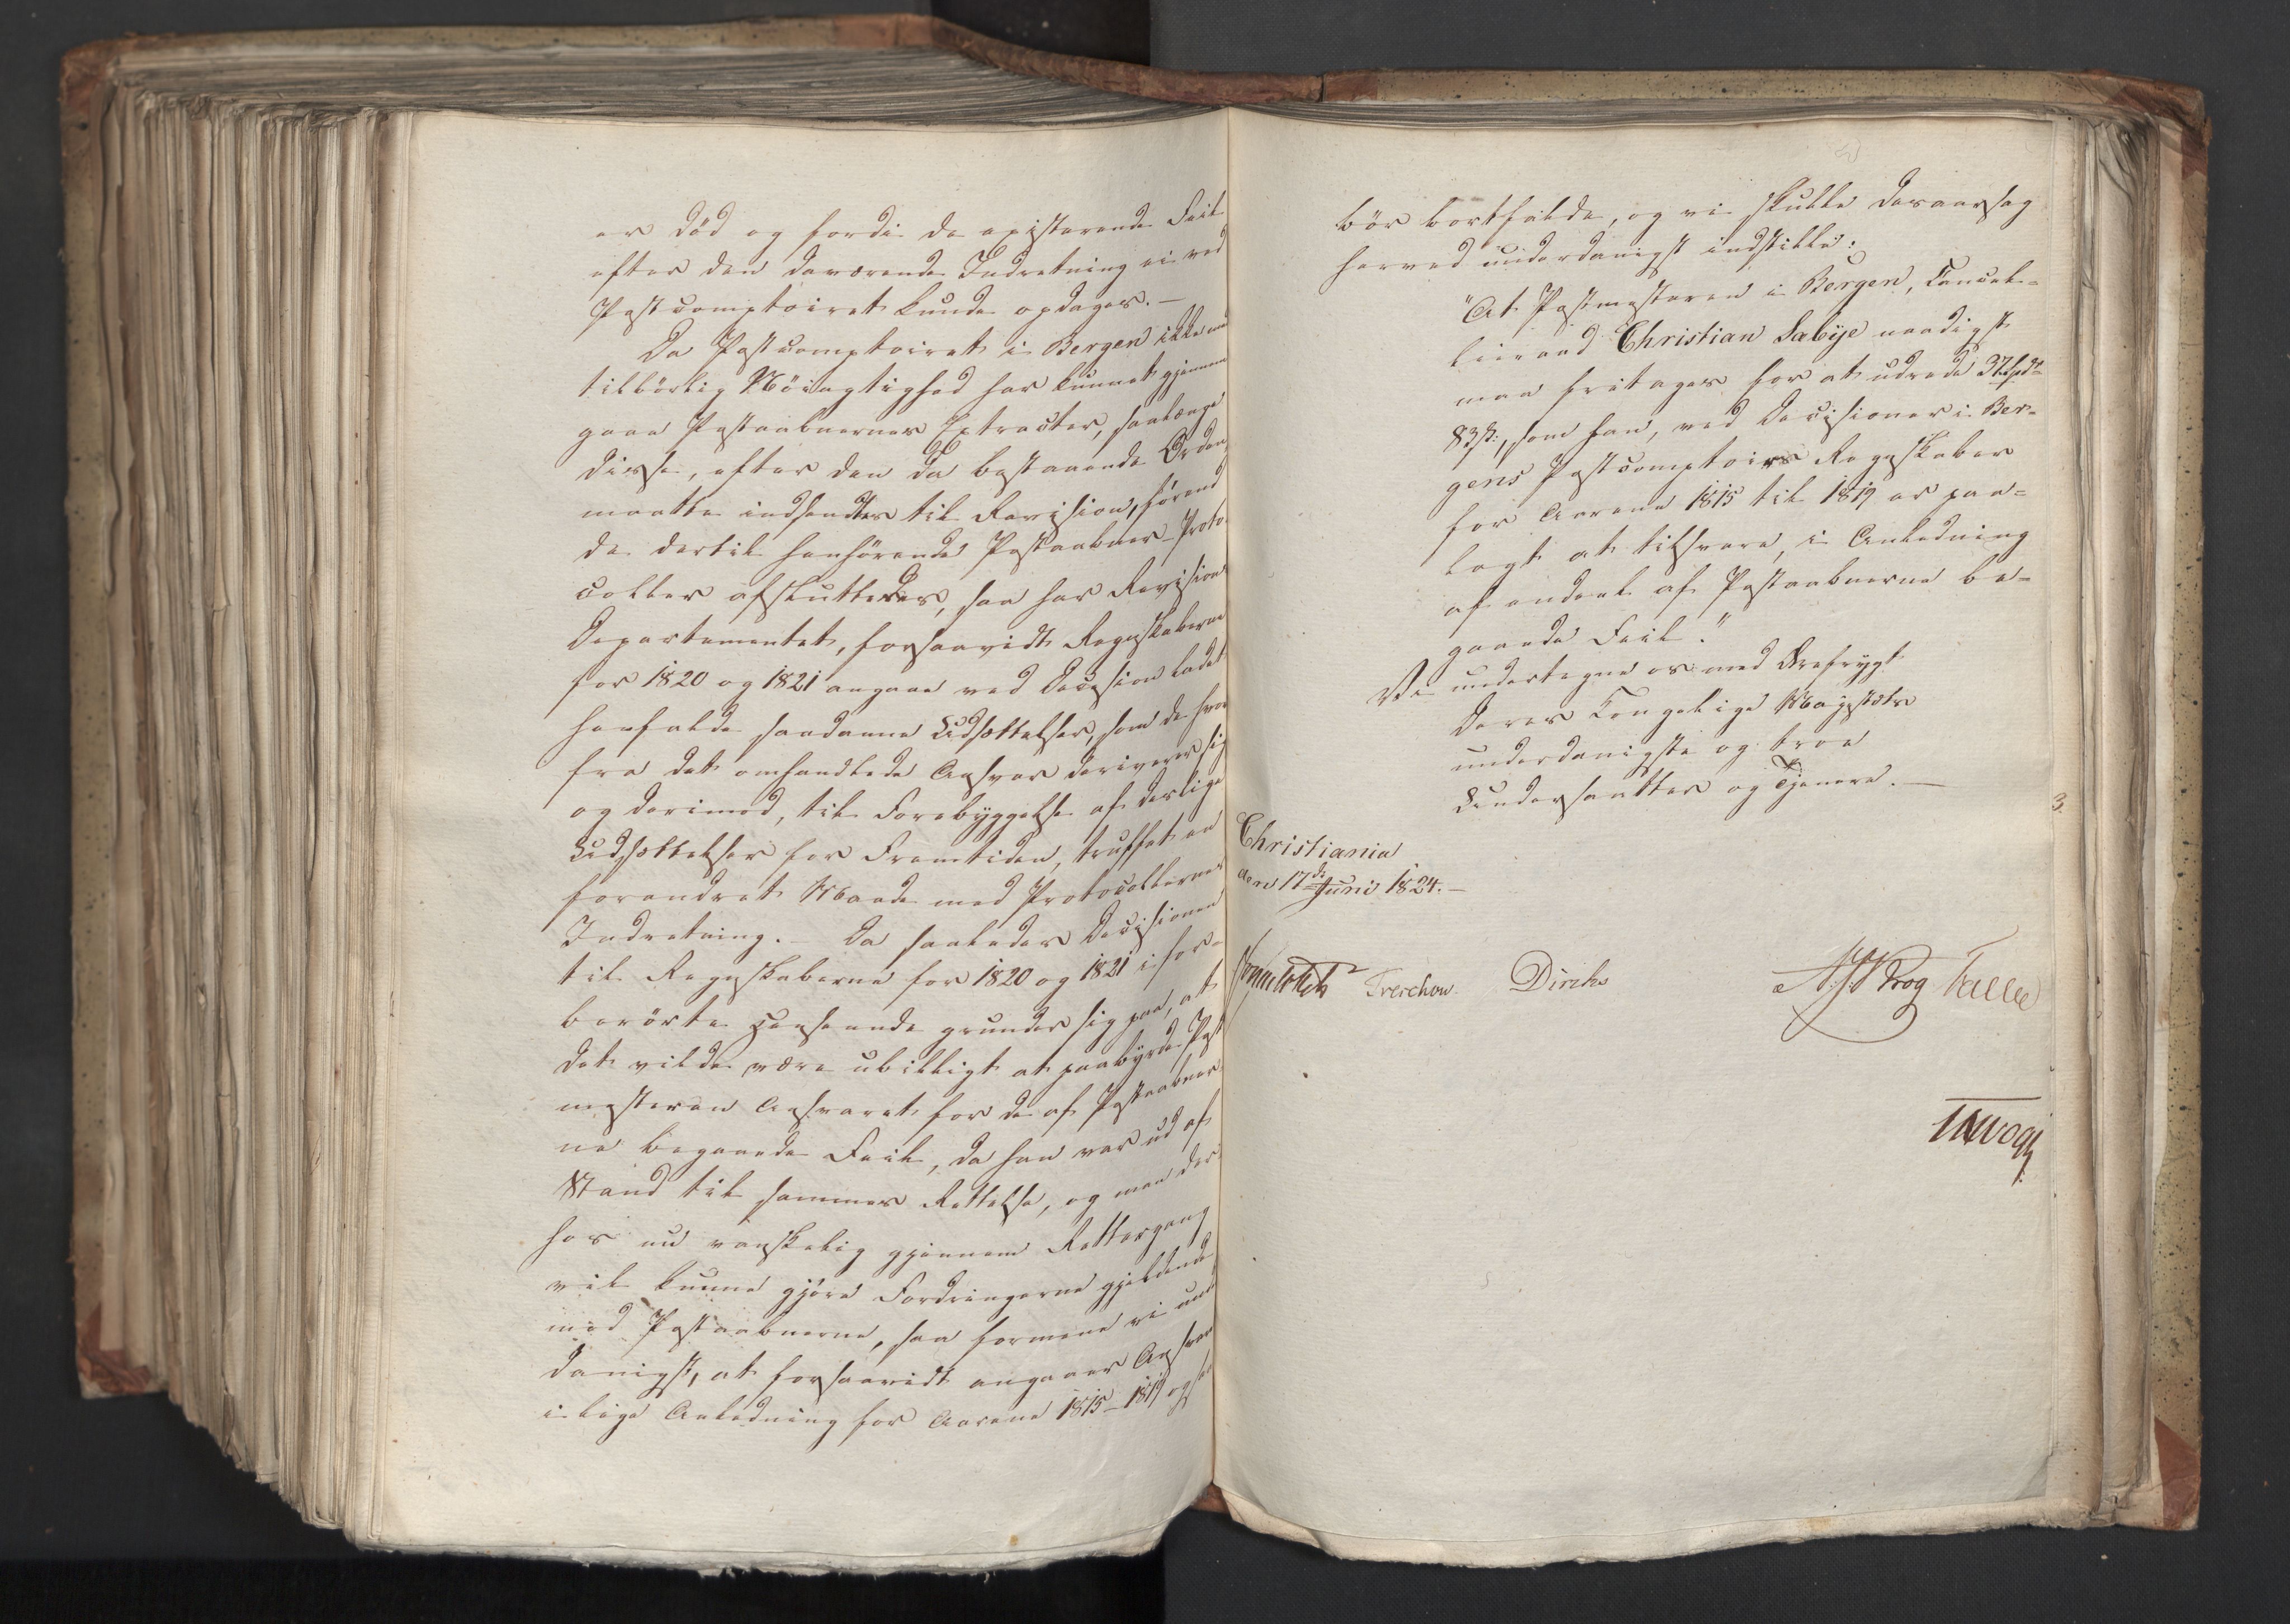 er död og fordi de existerende Feil
efter den daværende Indretning ei ved
Postcomptoiret kunde opdages.—
Da Postcomptoiret i Bergen ikke med
tilbörlig Nöiagtighed har kunnet gjennem
gaae Postaabnernes Extracter, saalænge
disse, efter den da bestaaende Orden,
maatte indsendtes til Revision, förend
de dertil henhörende Postaabner-Proto
coller afsluttedes, saa har Revisions
Departementet, forsaavidt Regnskaberne
for 1820 og 1821 angaae ved Decision ladet
henfalde saadanne Udsættelser, som de hvor
fra det omhandlede Ansvar deriverer sig
og derimod, til Forebyggelse af deslige
Udsættelser for Fremtiden, truffet en
forandret Maade med Protocollernes
Indretning.— Da saaledes Decisionen
til Regnskaberne for 1820 og 1821 i for-
berörte Henseende grunder sig paa, at
det vilde være ubilligt at paabyrde Post
mesteren Ansvaret for de af Postaabner
ne begaaede Feil, da han var ud af
Stand til sammes Rettelse, og man des
hos nu vanskelig gjennem Rettergang
vil kunne gjöre Fordringerne gjeldende
mod Postaabnerne, saa formene vi und
danigst, at forsaavidt angaaer Ansvar
i lige Anledning for Aarene 1815–1819 ogsaa
bör bortfalde, og vi skulle desaarsag
herved underdanigst indstille:
"At Postmesteren i Bergen, Cancel-
lieraad Christian Sabye naadigst
maa fritages for at udrede 37 Spdr
83 ß:, som han, ved Decisioner i Ber-
gens Postcomptoirs Regnskaber
for Aarene 1815 til 1819 er paa-
lagt at tilsvare, i Anledning
af endeel af Postaabnerne be-
gaaede Feil."
Vi undertegne os med Ærefrygt
Deres Kongelige Majestæts
underdanigste og troe
Undersaatter og Tjenere.—
Christiania
den 17de Juni 1824.—
Sommerhielm Treschow. Diriks Krog Fasting